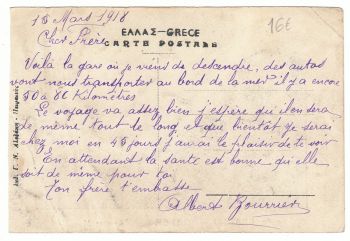 15 Mars 1918
16€
Cher Frère
ΕΛΛΑΣ–GRÈCE
CARTE POSTALE
Voilà la gare où je viens de descendre, des autos
vont nous transporter au bord de la mer il y a encore
80 à 85 Kilomètres
Le voyage va assez bien j'espère qu'il en sera
de même tout le long et que bientôt je serai
chez moi en 45 jours j'aurai le plaisir de te voir
En attendant la santé est bonne qu'elle
soit de même pour toi
Ton frère t'embrasse
Albert
Edit. G. N.